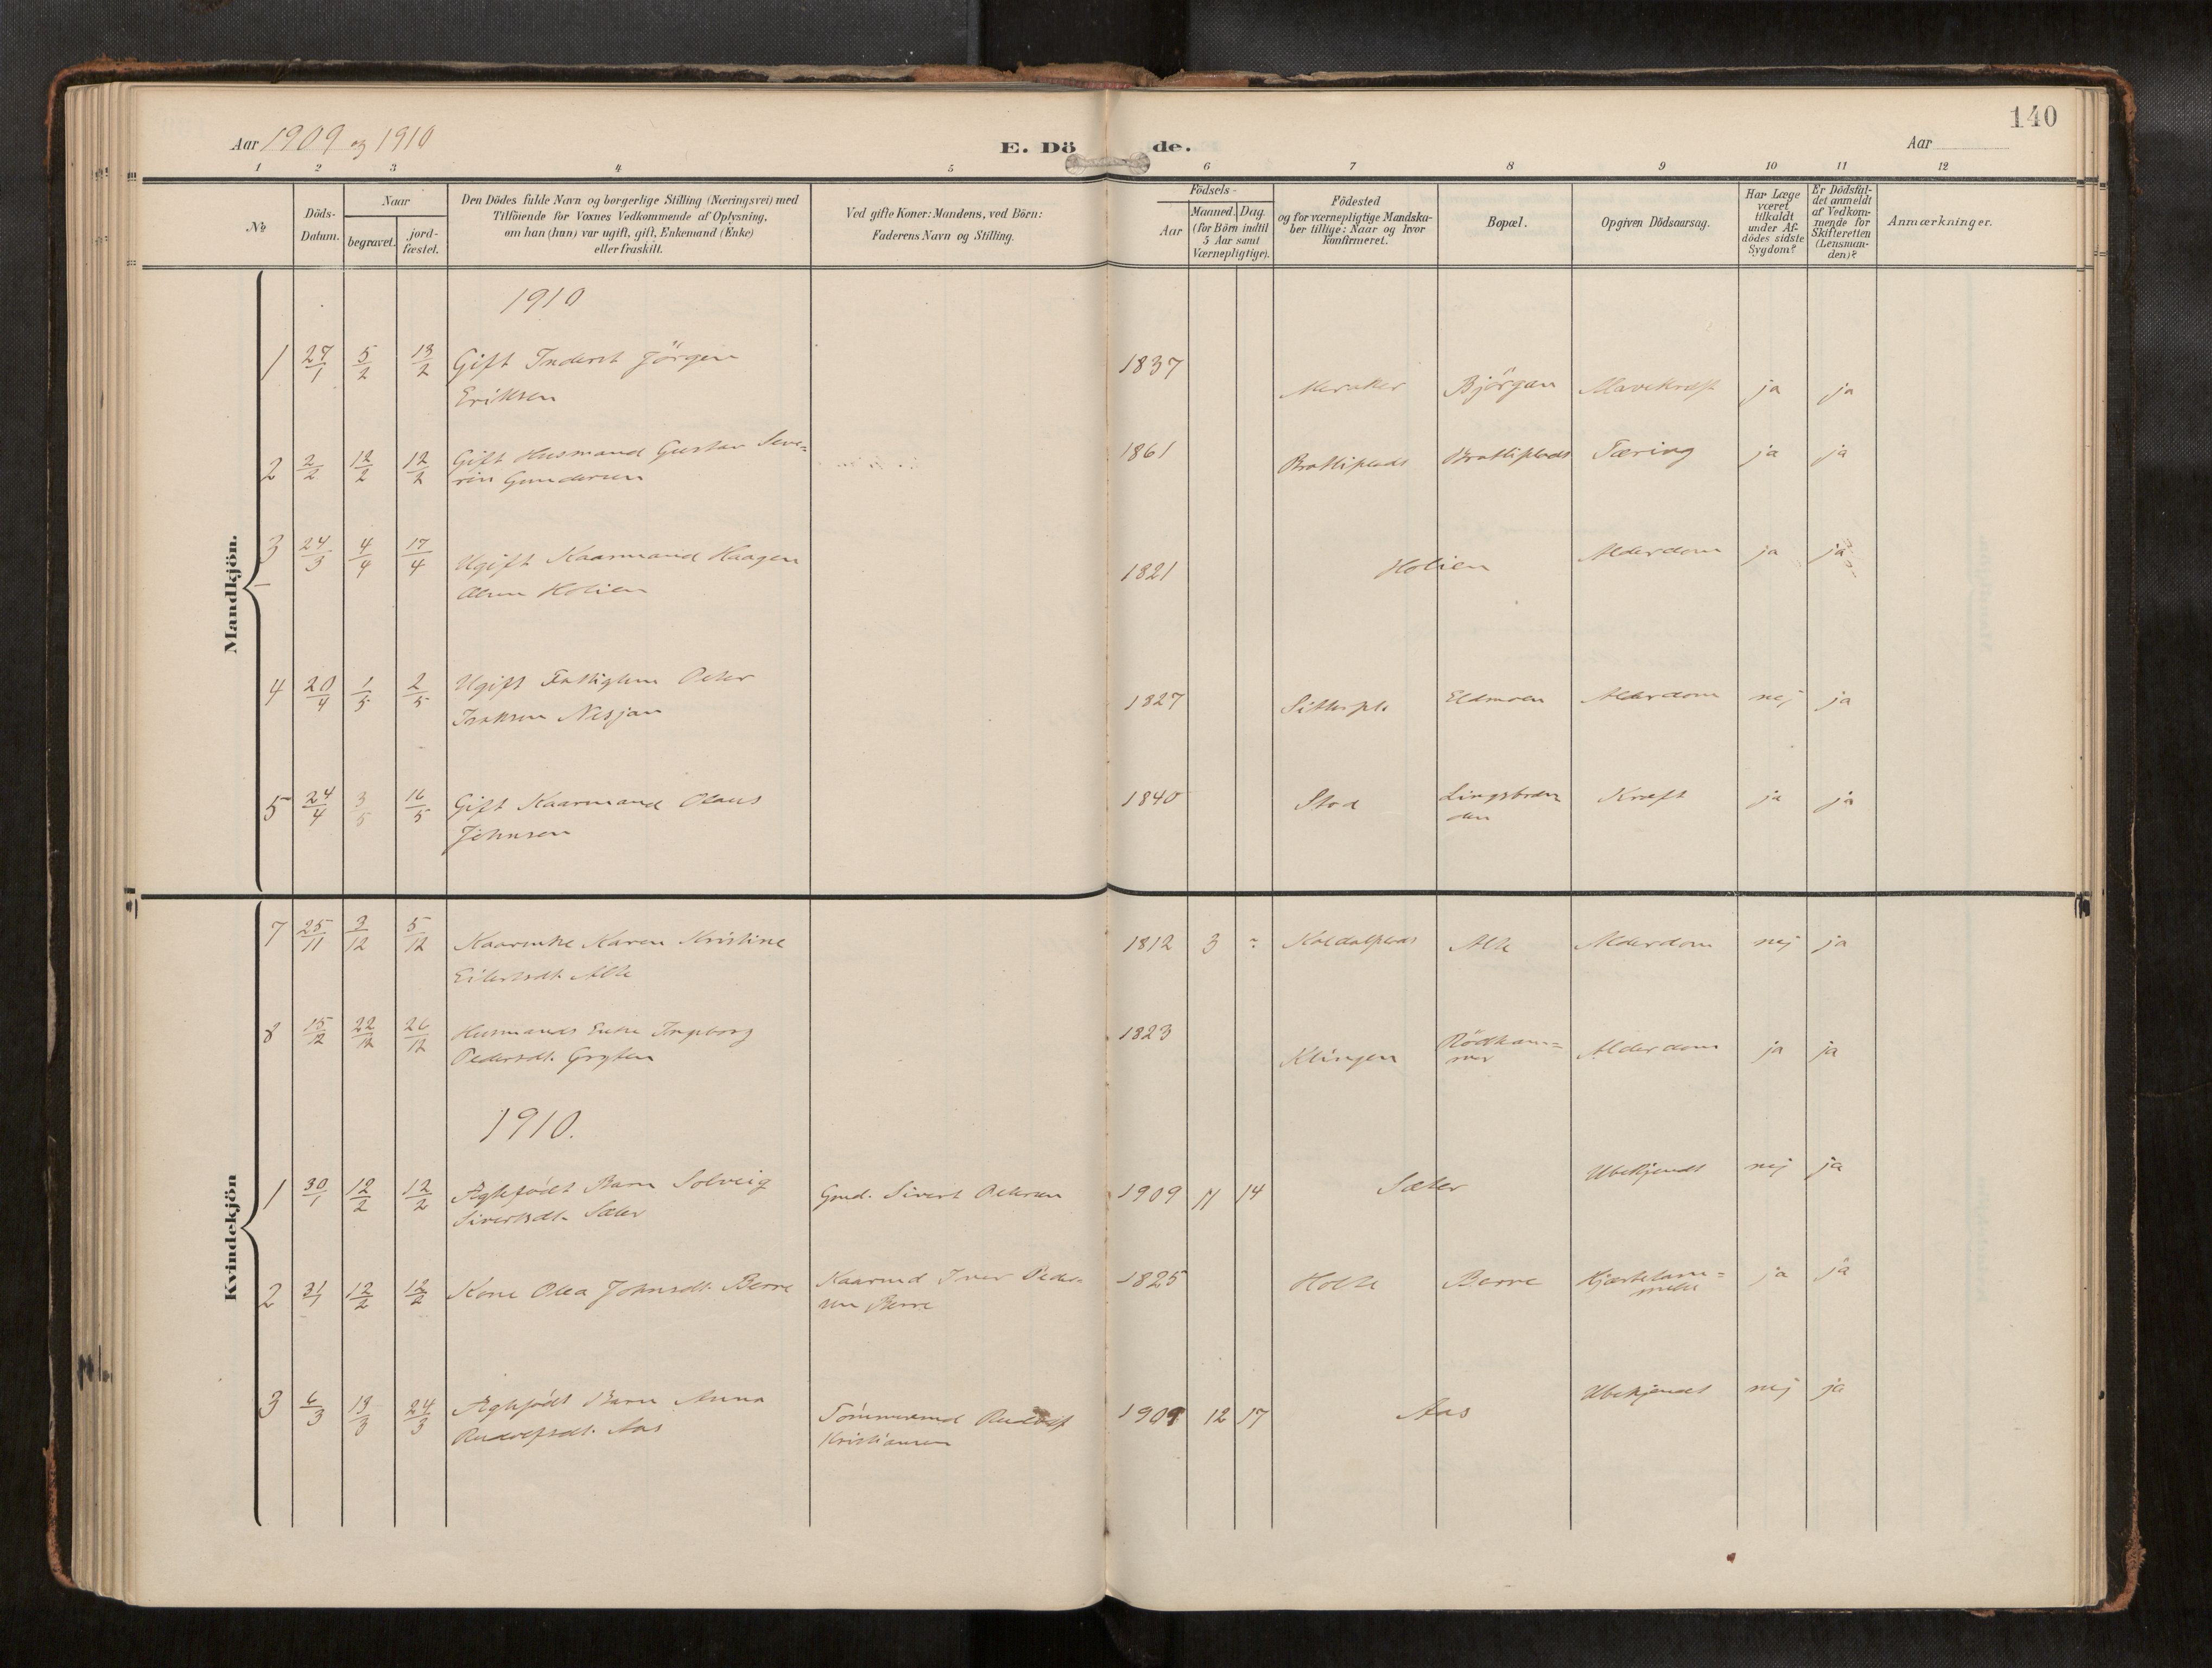 140
Aar 1909 og 1910
E. Döde.
Aar
1 2 3 4 5 6 7 8 9 10 11 12
№
Döds-Datum.
Naar
begravet.
jord-fæstet.
Den Dödes fulde Navn og borgerlige Stilling (Næringsvei) med
Tilföiende for Voxnes Vedkommende af Oplysning,
om han (hun) var ugift, gift, Enkemand (Enke)
eller fraskilt.
Ved gifte Koner: Mandens, ved Börn:
Faderens Navn og Stilling.
Födsels-
Aar
Maaned. Dag.
(for Börn indtil
5 Aar samt
Værnepligtige).
Födested
og for værnepligtige Mandska-
ber tillige: Naar og hvor
konfirmeret.
Bopæl.
Opgiven Dödsaarsag.
Har Læge
været
tilkaldt
under Af-
dödes sidste
Sygdom?
Er Dödsfal-
det anmeldt
af Vedkom-
mende for
Skifteretten
(Lensman-
den)?
Anmærkninger.
Mandkjön.
1910
1 27/1 5/2 13/2 Gift Inderst Jörgen 1837
Eriksen Meraker Björgan Mavekræft ja ja
2 2/2 12/2 12/2 Gift Husmand Gustav Seve= 1861 Brattiplads Brattiplads Tæring ja ja
rin Gundersen
3 24/3 4/4 17/4 Ugift Kaarmand Haagen 1821 Holien Alderdom ja ja
Olsen Holien
4 20/4 1/5 2/5 Ugift Fattiglem Peter 1827 Eldmoen Alderdom nej ja
Isaksen Nesjan
5 24/4 3/5 16/5 Gift Kaarmand Olaus 1840 Stod Kræft ja ja
Johnsen
Kvindekjön
7 25/11 3/12 5/12 Kaarenke Karen Kristine 1812 3 ? Alderdom nej ja
8 15/12 22/12 26/12 Husmands Enke Ingeborg 1823 Klingen Rödham= Alderdom ja ja
Pedersdt. Grythen mer
1910.
1 30/1 12/2 12/2 Ægtefödt Barn Solveig Gmd. Sivert Petersen 1909 11 14 Sæter Ubekjendt nej ja
Sivertsdt. Sæter
2 31/1 12/2 12/2 Kone Olea Johnsdt. Berre Kaarmd Iver Peder- 1825 Holte Berre Hjertelam= ja ja
sen Berre melse
3 6/3 13/3 24/3 Ægtefödt Barn Anna Tömmermd Rudolf 1909 12 17 Aas Ubekjendt nej ja
Rudolfsdt. Aas Kristiansen